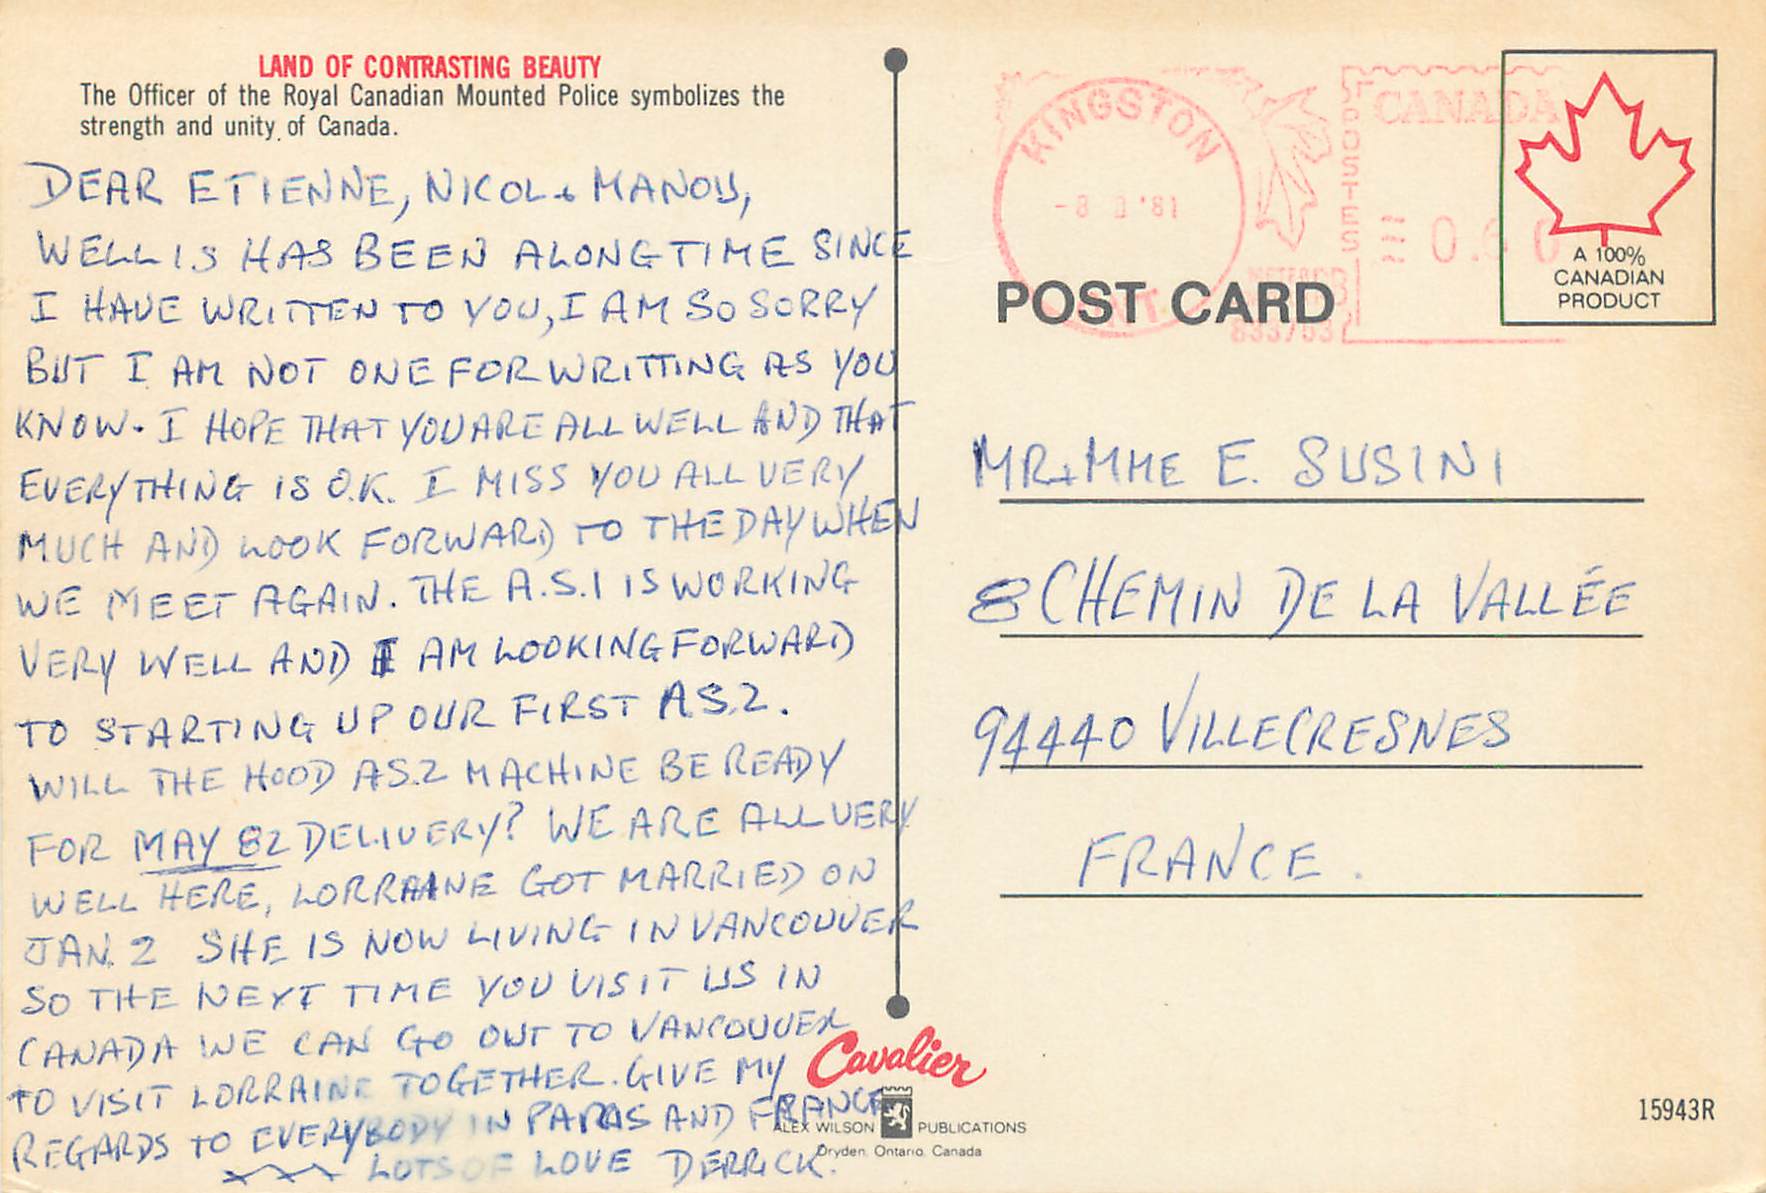 LAND OF CONTRASTING BEAUTY
The Officer of the Royal Canadian Mounted Police symbolizes the
strength and unity of Canada.
DEAR ETIENNE, NICOL + MANOU,
WELL IS HAS BEEN A LONG TIME SINCE
I HAVE WRITTEN TO YOU, I AM SO SORRY
BUT I AM NOT ONE FOR WRITTING AS YOU
KNOW. I HOPE THAT YOU ARE ALL WELL AND THAT
EVERYTHING IS O.K. I MISS YOU ALL VERY
MUCH AND LOOK FORWARD TO THE DAY WHEN
WE MEET AGAIN. THE A.S.1 IS WORKING
VERY WELL AND I AM LOOKING FORWARD
TO STARTING UP OUR FIRST A.S.2.
WILL THE HOOD A.S.2 MACHINE BE READY
FOR MAY 82 DELIVERY? WE ARE ALL VERY
WELL HERE, LORRAINE GOT MARRIED ON
JAN. 2 SHE IS NOW LIVING IN VANCOUVER
SO THE NEXT TIME YOU VISIT US IN
CANADA WE CAN GO OUT TO VANCOUVER
TO VISIT LORRAINE TOGETHER. GIVE MY
REGARDS TO EVERYBODY IN AND FRANCE
XXX LOTS OF LOVE DERRICK.
KINGSTON
-8 '81
ONT.
POSTES
CANADA
0.60
833703
POST CARD
A 100%
CANADIAN
PRODUCT
MR + MME E. SUSINI
8 CHEMIN DE LA VALLÉE
94440 VILLECRESNES
FRANCE.
Cavalier
ALEX WILSON PUBLICATIONS
Dryden, Ontario, Canada
15943R